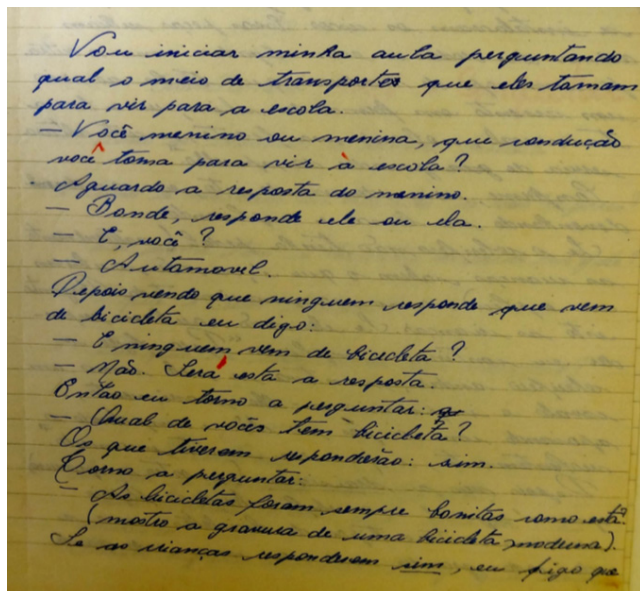 Vou iniciar minha aula perguntando
qual o meio de transporte que eles tomam
para vir para a escola.
— Você menino ou menina, que condução
você toma para vir à escola?
Aguardo a resposta do menino.
— Bonde, responde ele ou ela.
— E, você?
— Automovel.
Depois vendo que ninguem responde que vem
de bicicleta eu digo:
— E ninguem vem de bicicleta?
— Não. Será esta a resposta.
Então eu torno a perguntar:
— Qual de vocês tem bicicleta?
Os que tiverem responderão: sim.
Torno a perguntar:
— As bicicletas foram sempre bonitas como esta?
(mostro a gravura de uma bicicleta moderna).
Se as crianças responderem sim, eu digo que